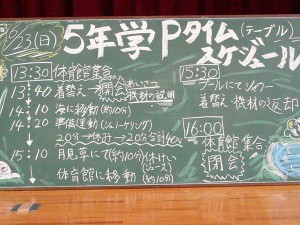 6/23(日)
5年学Pタイム(テーブル)
スケジュール
13:30 体育館集合
13:40 着替え→開会 あいさつ 機材の説明
14:10 海に移動(約10分)
14:20 準備運動(シュノーケリング)
20分→休み→20分 合計40分
15:10 月見草にて(約10分)
体育館に移動(約10分)
15:30
プールにてシャワー
着替え・機材の返却
16:00
体育館集合
閉会